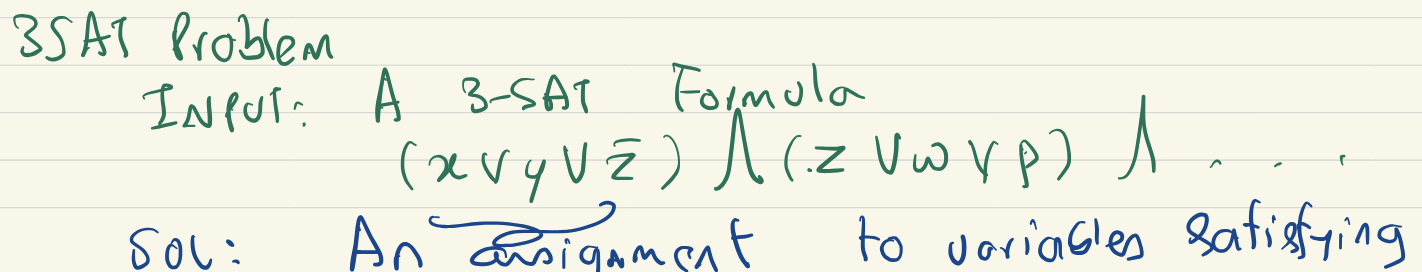 3SAT Problem
INPUT: A 3-SAT Formula
(x ∨ y ∨ z̄) ∧ (z ∨ w ∨ p) ∧ . . .
SOL: An assignment to variables satisfying